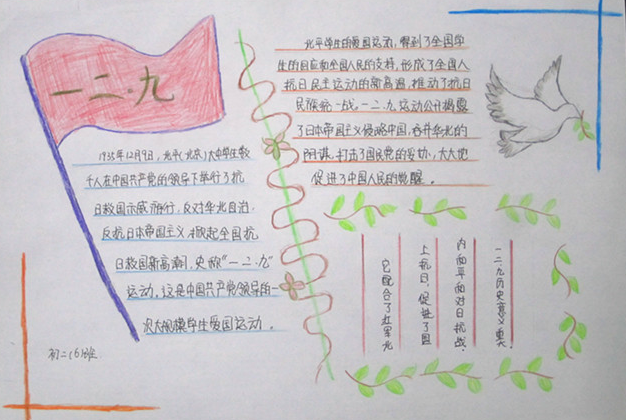 一二·九
1935年12月9日，北平(北京)大中学生数
千人在中国共产党的领导下举行了抗
日救国示威游行，反对华北自治，
反抗日本帝国主义，掀起全国抗
日救国新高潮，史称"一二·九"
运动，这是中国共产党领导的一
次大规模学生爱国运动。
初二(6)班
北平学生的爱国运动，得到了全国学
生的响应和全国人民的支持，形成了全国人
抗日民主运动的新高潮，推动了抗日
民族统一战一二·九运动公开揭露
了日本帝国主义侵略中国，吞并华北的
阴谋，打击了国民党的妥协，大大地
促进了中国人民的觉醒。
一二·九历史意义重大
内面平面对日抗战，
上抗日，促进了国
它配合了红军北